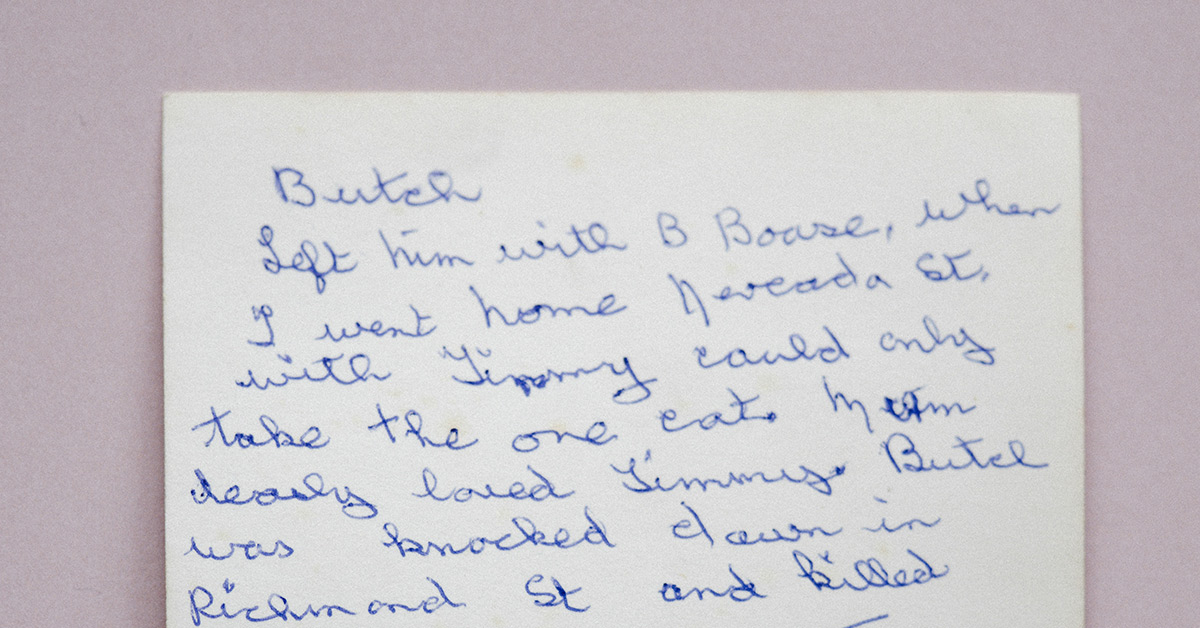 Butch
Left him with B Boase, when
I went home Nevada St,
with Timmy could only
take the one cat. Mum
dearly loved Timmy. Butch
was knocked down in
Richmond St and killed